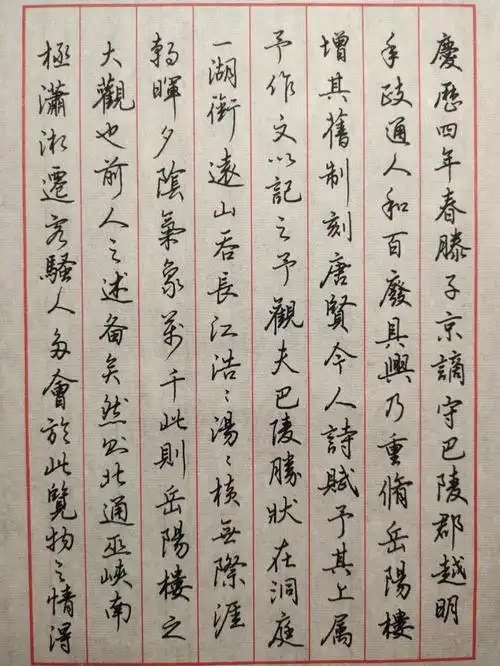 慶歷四年春滕子京謫守巴陵郡越明
年政通人和百廢具興乃重脩岳陽樓
增其舊制刻唐賢今人詩賦予其上属
予作文以記之予觀夫巴陵勝狀在洞庭
一湖銜遠山吞長江浩〻湯〻橫無際涯
朝暉夕陰氣象萬千此則岳陽樓之
大觀也前人之述备矣然則北通巫峽南
極瀟湘遷客騷人多會於此覽物之情得